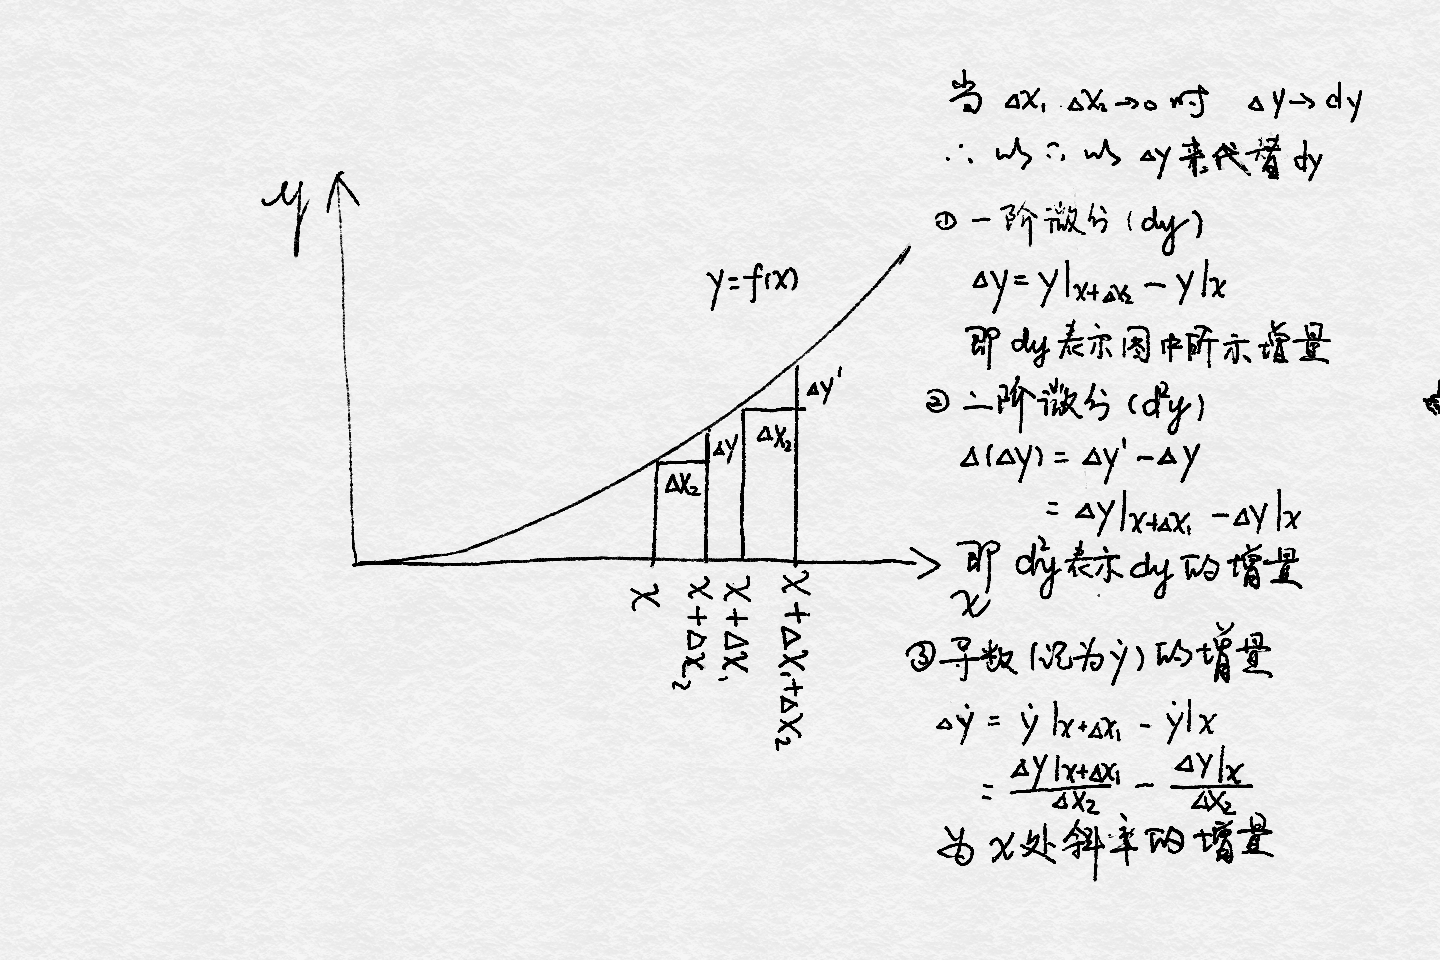 y
y=f(x)
Δy'
ΔX₂
Δy
ΔX₂
x
x+ΔX₂
x+ΔX₁
x+ΔX₁+ΔX₂
当 ΔX₁ ΔX₂→0时 Δy→dy
∴ 以∴以 Δy来代替dy
① 一阶微分(dy)
Δy=y|x+Δx₂ - y|x
即dy表示图中所示增量
② 二阶微分(d²y)
Δ(Δy) = Δy'-Δy
= Δy|x+Δx₁ -Δy|x
即 d²y表示dy的增量
x
③导数(记为ẏ)的增量
Δẏ = ẏ|x+Δx₁ - ẏ|x
= Δy|x+Δx₁/ΔX₂ - Δy|x/ΔX₂
为x处斜率的增量